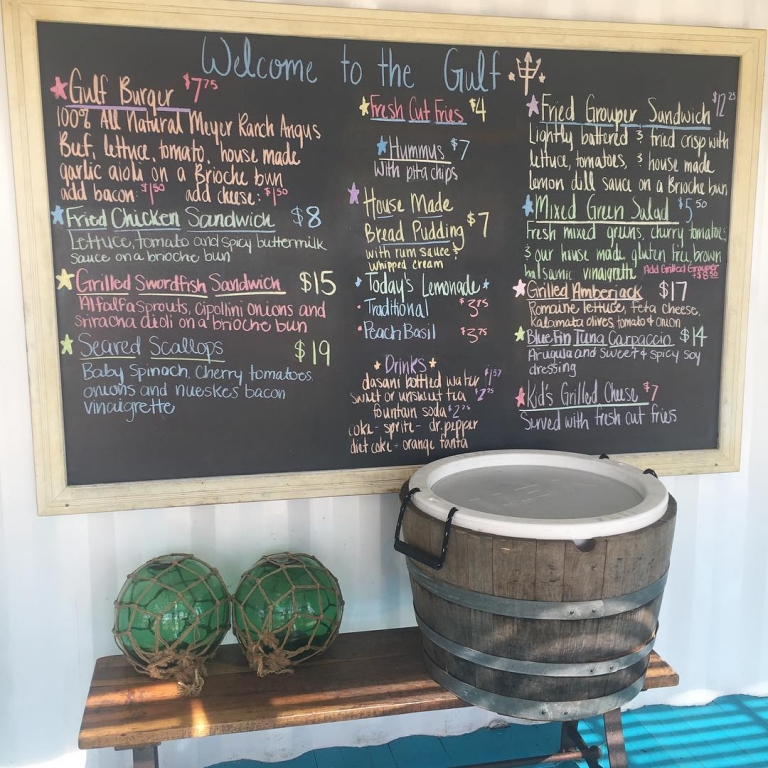 Welcome to the Gulf
Gulf Burger $7.75
100% All Natural Meyer Ranch Angus
Beef, lettuce, tomato, house made
garlic aioli on a Brioche bun
add bacon: $1.50 add cheese: $1.50
Fried Chicken Sandwich $8
Lettuce, tomato and spicy buttermilk
sauce on a brioche bun
Grilled Swordfish Sandwich $15
Alfalfa Sprouts, Cipollini onions and
sriracha aioli on a brioche bun
Seared Scallops $19
Baby spinach, cherry tomatoes,
onions and nueskes bacon
vinaigrette
Fresh Cut Fries $4
Hummus $7
with pita chips
House Made
Bread Pudding $7
with rum sauce &
whipped cream
Today's Lemonade
Traditional $3.75
Peach Basil $3.75
Drinks
dasani bottled water
sweet or unsweet tea
fountain soda $2.75
coke - sprite - dr. pepper
diet coke - orange fanta
Fried Grouper Sandwich $12.25
Lightly battered & fried crisp with
lettuce, tomatoes, & house made
lemon dill sauce on a Brioche bun
Mixed Green Salad $5.50
Fresh mixed greens, cherry tomatoes
& our house made gluten free brown
balsamic vinaigrette Add Grilled Grouper
Grilled Amberjack $17
Romaine lettuce, feta cheese,
Kalamata olives, tomato & onion
Blue Fin Tuna Carpaccio $14
Arugula and sweet & spicy soy
dressing
Kid's Grilled Cheese $7
Served with fresh cut fries